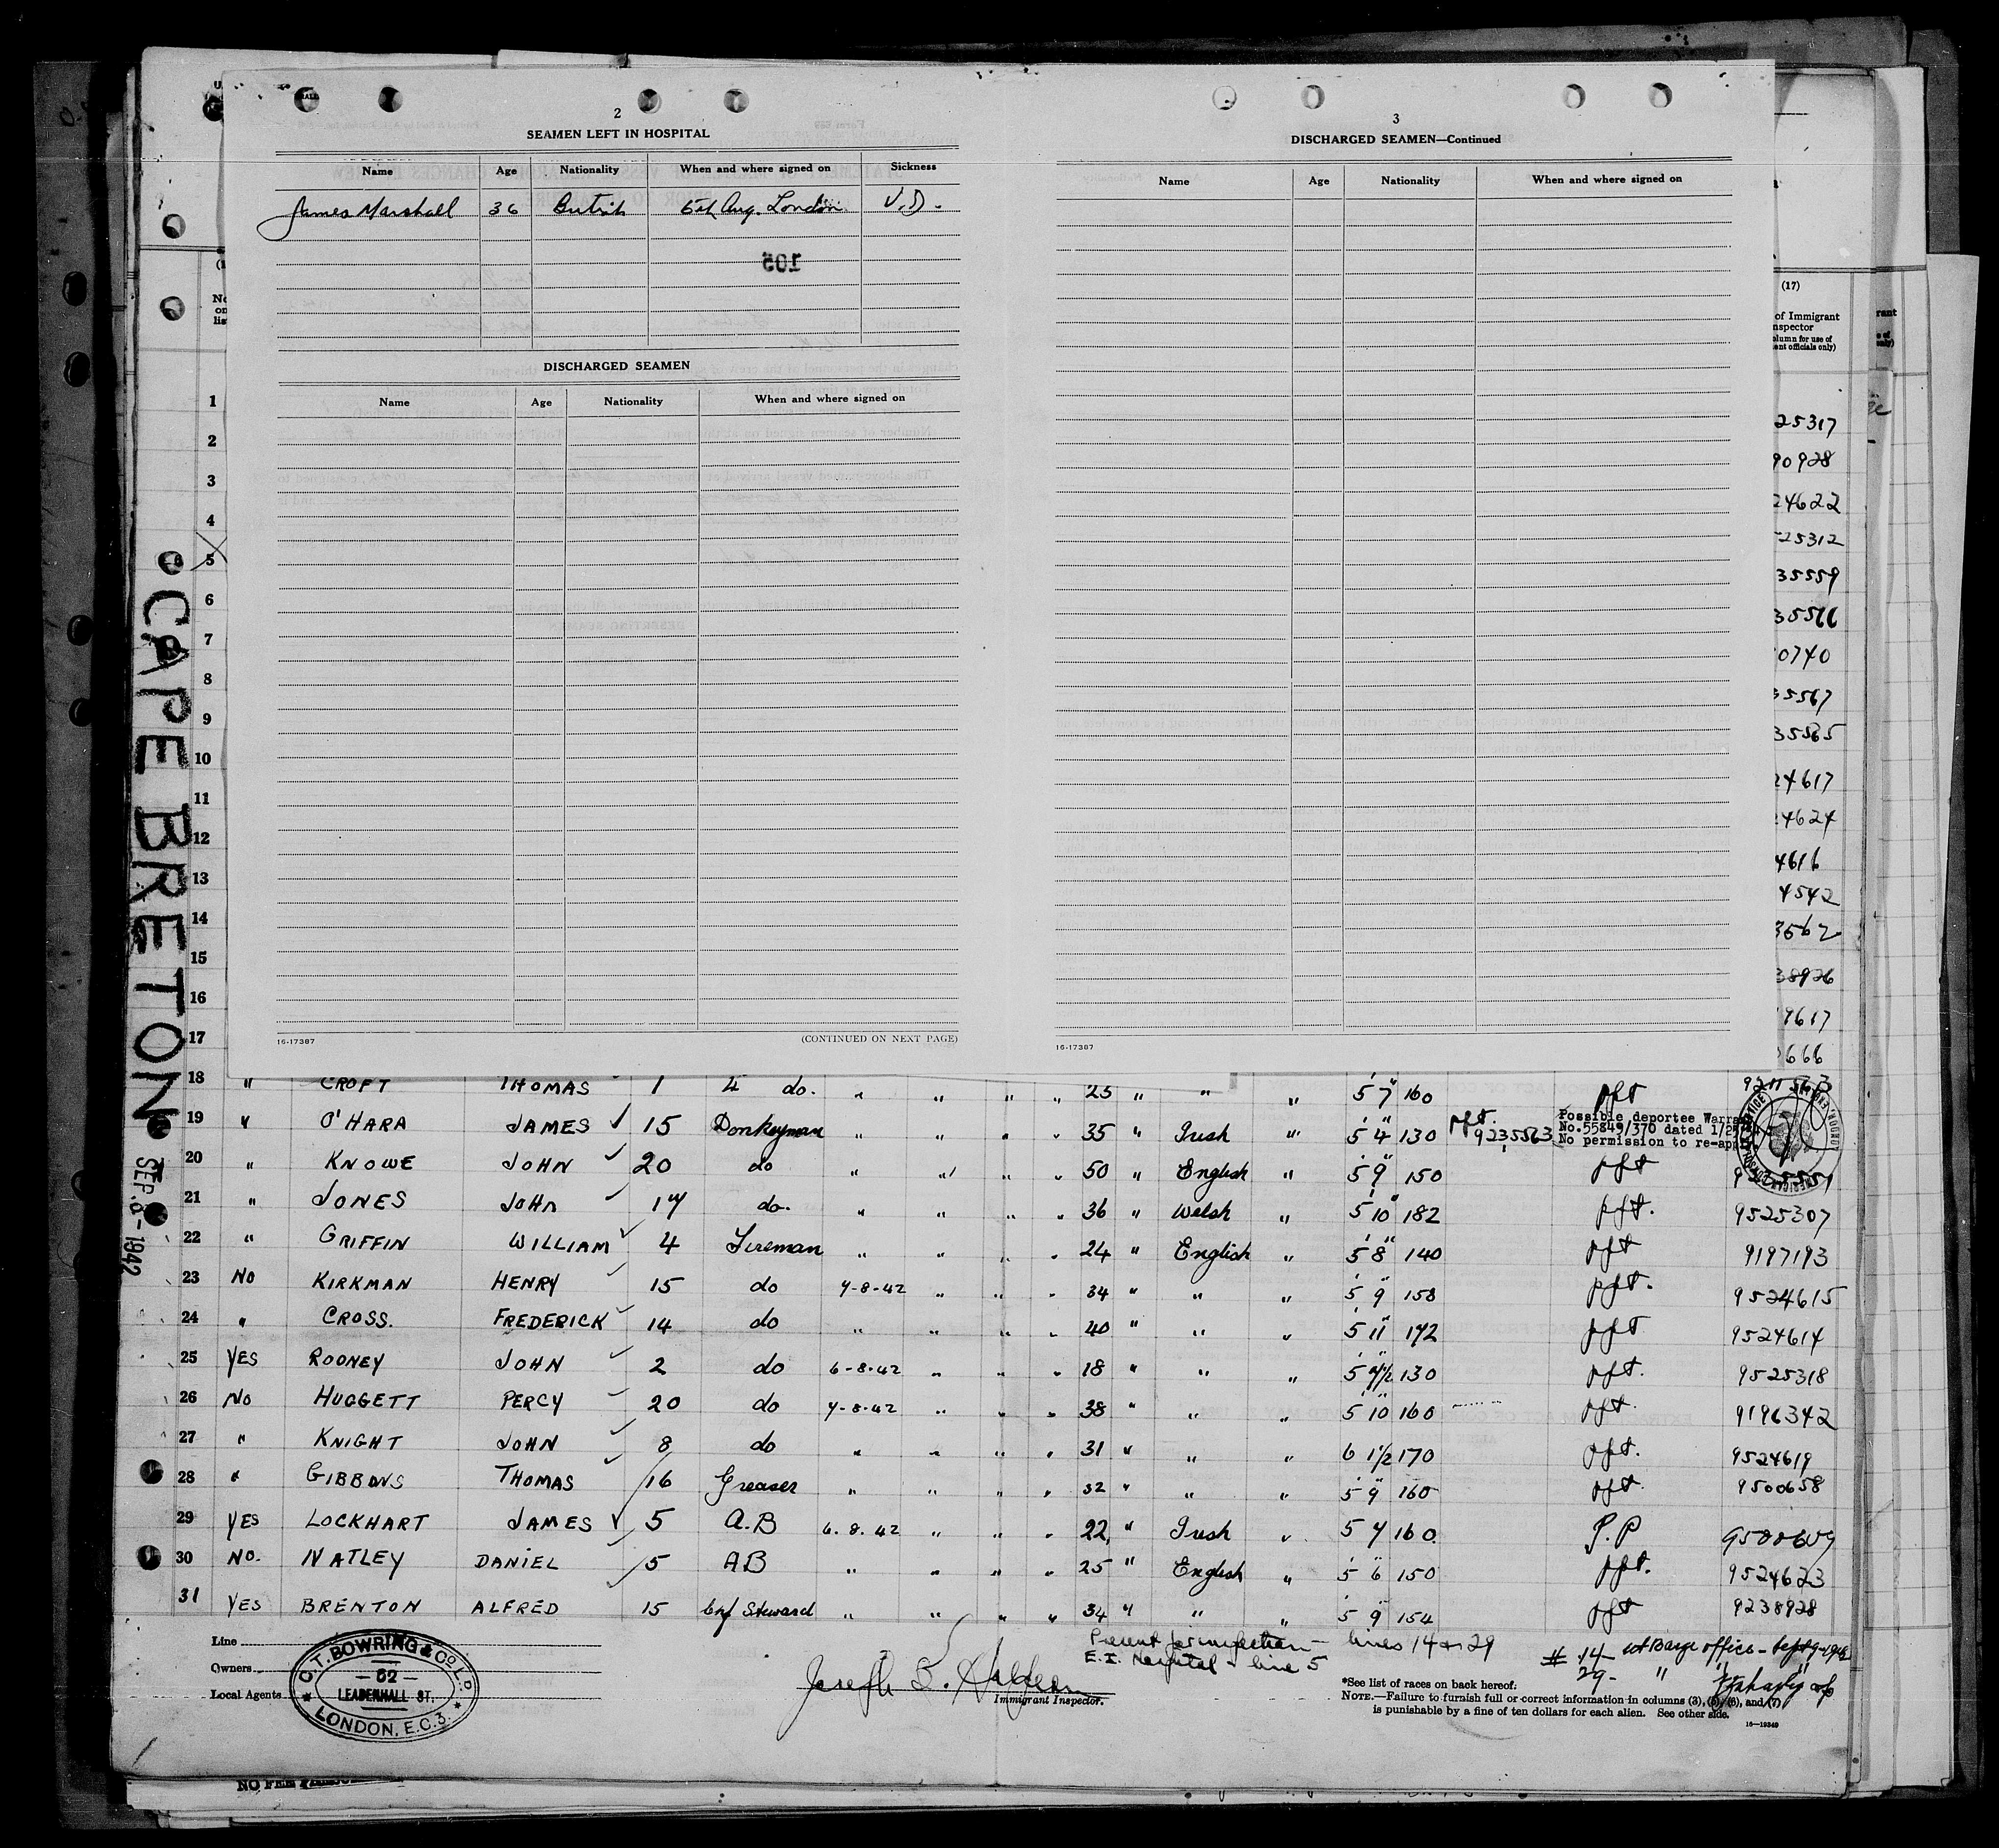 2
SEAMEN LEFT IN HOSPITAL
Name Age Nationality When and where signed on Sickness
James Marshall 36 British 5th Aug. London V.D.
105
DISCHARGED SEAMEN
Name Age Nationality When and where signed on
16-17387 (CONTINUED ON NEXT PAGE)
3
DISCHARGED SEAMEN—Continued
Name Age Nationality When and where signed on
16-17387
(17)
of Immigrant
Inspector
CAPE BRETON
SEP. 8 - 1942
1
2
3
4
5
6
7
8
9
10
11
12
13
14
15
16
17
25317
90928
24622
25312
35559
35566
0740
35567
35565
24617
24624
4616
4542
3567
38926
9617
666
18 " CROFT THOMAS 1 4 do. " " " " 25 " " " 5' 7" 160 pft
19 " O'HARA JAMES ✓ 15 Donkeyman " " " " 35 " Irish " 5' 4" 130 pft. 9235563
Possible deportee Warra
No.55849/370 dated 1/25
No permission to re-app
20 " KNOWE JOHN ✓ 20 do " " " " 50 " English " 5' 9" 150 pft
21 " JONES JOHN ✓ 17 do. " " " " 36 " Welsh " 5' 10" 182 pft. 9525307
22 " GRIFFIN WILLIAM ✓ 4 Fireman " " " " 24 " English " 5' 8" 140 pft 9197193
23 No KIRKMAN HENRY ✓ 15 do 7-8-42 " " " 34 " " " 5' 9" 158 pft. 9524615
24 " CROSS. FREDERICK ✓ 14 do " " " " 40 " " " 5' 11" 172 pft 9524614
25 YES ROONEY JOHN ✓ 2 do 6-8-42 " " " 18 " " " 130 pft. 9525318
26 No HUGGETT PERCY ✓ 20 do 7-8-42 " " " 38 " " " 5' 10" 160 pft. 9196342
27 " KNIGHT JOHN ✓ 8 do " " " " 31 " " " 6 1/2 170 pft. 9524619
28 " GIBBONS THOMAS ✓ 16 Greaser " " " " 32 " " " 5' 9" 160 pft. 9500658
29 YES LOCKHART JAMES ✓ 5 A.B 6.8.42 " " " 22 " Irish " 5 7 160. P.P 9500609
30 No. NATLEY DANIEL ✓ 5 AB " " " " 25 " English " 5' 6" 150 pft. 9524623
31 YES BRENTON ALFRED 15 Chf Steward " " " " 34 " " " 5' 9" 154 pft 9238928
Line
Owners
Local Agents
C.T. BOWRING & CO. LTD.
— 52 —
LEADENHALL ST.
LONDON, E.C.3.
Joseph
Immigrant Inspector.
Present for inspection — lines 14 & 29
E.I. Hospital - line 5
# 14 - at Barge office - Sept 9 - 1942
29 - " "
*See list of races on back hereof.
NOTE.—Failure to furnish full or correct information in columns (3), (5), (6), and (7)
is punishable by a fine of ten dollars for each alien. See other side.
16—19349